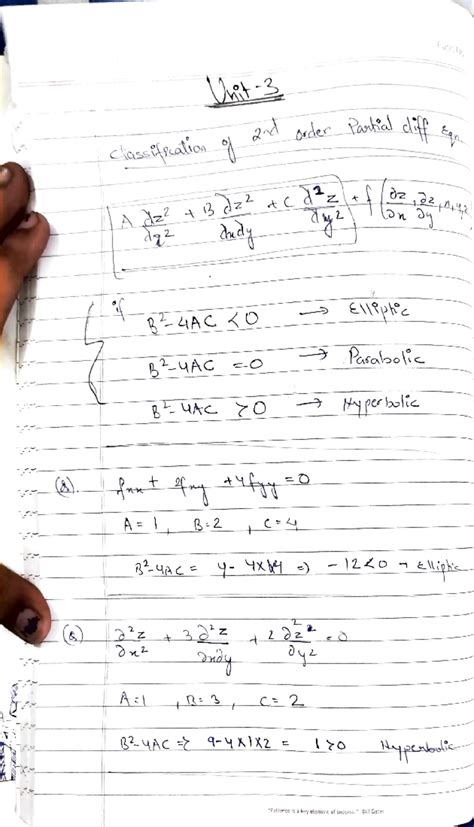 Unit-3
Classification of 2nd order Partial diff Eqn.
A ∂z²/∂x² + B ∂z²/∂x∂y + C ∂²z/∂y² + f (∂z/∂x, ∂z/∂y, x, y, z
if B²-4AC < 0 → Elliptic
B²-4AC = 0 → Parabolic
B²-4AC > 0 → Hyperbolic
(Q). fxx + 2fxy + 4fyy = 0
A = 1, B = 2, C = 4
B²-4AC = 4 - 4×1×4 => -12<0 → Elliptic
(Q) ∂²z/∂x² + 3∂²z/∂x∂y + 2∂²z²/∂y² = 0
A = 1, B = 3, C = 2
B²-4AC => 9-4×1×2 = 1>0 Hyperbolic
"Patience is a key element of success." Bill Gates